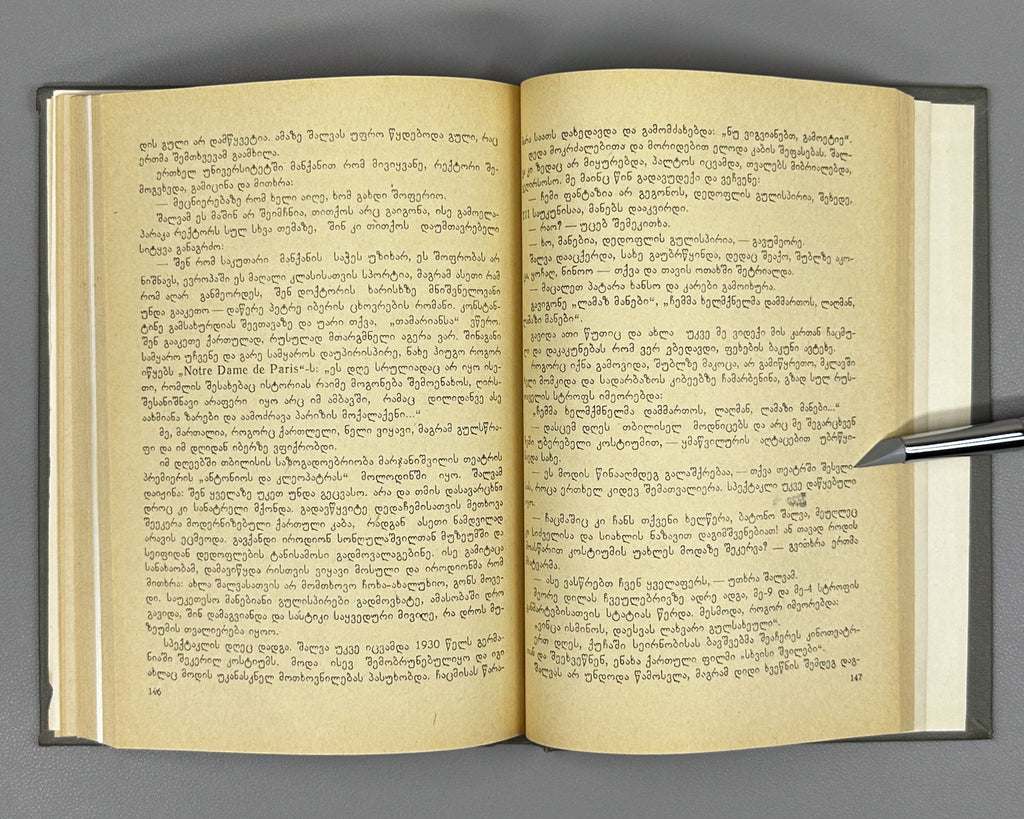 დის გული არ დამწყვეტია. ამაზე შალვას უფრო წყდებოდა გული, რაც
ერთმა შემთხვევამ გაამხილა.
ერთხელ უნივერსიტეტში მანქანით რომ მივიყვანე, რექტორი შე-
მოგვხვდა, გამიცინა და მითხრა:
— მეცნიერებაზე რომ ხელი აიღე, ხომ გახდი შოფერიო.
შალვამ ეს მაშინ არ შეიმჩნია, თითქოს არც გაიგონა, ისე გამოელა-
პარაკა რექტორს სულ სხვა თემაზე, შინ კი თითქოს დაუმთავრებელი
სიტყვა განაგრძო:
— შენ რომ საკუთარი მანქანის საჭეს უზიხარ, ეს შოფრობას არ
ნიშნავს, ევროპაში ეს მაღალი კლასისათვის სპორტია, მაგრამ ასეთი რამ
რომ აღარ განმეორდეს, შენ დოქტორის ხარისხზე მნიშვნელოვანი
უნდა გააკეთო — დაწერე პეტრე იბერის ცხოვრების რომანი. კონსტან-
ტინე გამსახურდიას შევთავაზე და უარი თქვა, „თამარიანსა“ ვწერო.
შენ გააკეთე ქართულად, რუსულად მთარგმნელი აგერა ვარ. შინაგანი
სამყარო უჩვენე და გარე სამყაროს დაუპირისპირე, ნახე ჰიუგო როგორ
იწყებს „Notre Dame de Paris“-ს: „ეს დღე სრულიადაც არ იყო ისე-
თი, რომლის შესახებაც ისტორიას რაიმე მოგონება შემოენახოს, ღირს-
შესანიშნავი არაფერი იყო არც იმ ამბავში, რამაც დილიდანვე ასე
აახმიანა ზარები და აამოძრავა პარიზის მოქალაქენი...“
მე, მართალია, როგორც ქართლელი, ნელი ვიყავი, მაგრამ გულსწრა-
ფი და იმ დღიდან იბერზე ვფიქრობდი.
იმ დღეებში თბილისის საზოგადოებრიობა მარჯანიშვილის თეატრის
პრემიერის „ანტონიოს და კლეოპატრას“ მოლოდინში იყო. შალვამ
დაიჟინა: შენ ყველაზე უკეთ უნდა გეცვასო. არა და თმის დასავარცხნი
დროც კი სანატრელი მქონდა. გადავწყვიტე დედაჩემისათვის მეთხოვა
შეეკერა მოდერნიზებული ქართული კაბა, რადგან ასეთი ნამდვილად
არავის ეცმეოდა. გავქანდი იროდიონ სონღულაშვილთან მუზეუმში და
სეიფიდან დედოფლების ტანისამოსი გადმოვალაგებინე. ისე გამიტაცა
სანახაობამ, დამავიწყდა რისთვის ვიყავი მოსული და იროდიონმა რომ
მითხრა: ახლა შალვასათვის არ მომთხოვო ჩოხა-ახალუხიო, გონს მოვე-
დი. საუკეთესო მანებიანი გულისპირები გადმოვხატე, ამასობაში დრო
გავიდა, შინ დამაგვიანდა და სასტიკი საყვედური მივიღე, რა დროს მუ-
ზეუმის თვალიერება იყოო.
სპექტაკლის დღეც დადგა. შალვა უკვე იცვამდა 1930 წელს გერმა-
ნიაში შეკერილ კოსტიუმს, მოდა ისევ შემობრუნებულიყო და იგი
ახლაც მოდის უკანასკნელ მოთხოვნილებას პასუხობდა. ჩაცმისას წარა-
146
საათს დახედავდა და გამომძახებდა: „ნუ ვიგვიანებთ, გამოეტიე“.
დედა მოკრძალებითა და მორიდებით ელოდა კაბის შეფასებას. შალ-
კი ზედაც არ მიყურებდა, პალტოს იცვამდა, თვალებს მიბრიალებდა,
მე მაინც წინ გადავუდექი და ვეჩვენე:
— ჩემი ფანტაზია არ გეგონოს, დედოფლის გულისპირია, შეხედე,
საუკუნისაა, მანებს დააკვირდი.
— რაო? — უცებ შემეკითხა.
— ხო, მანებია, დედოფლის გულისპირია, — გავუმეორე.
შალვა დააცქერდა, სახე გაუბრწყინდა, დედაც შეაქო, შუბლზე აკო-
ყოჩაღ, ნინოო — თქვა და თავის ოთახში შეტრიალდა.
— მაცალეთ პატარა ხანსო და კარები გამოიხურა.
გავიგონე „ლამაზ მანები“, „ჩემმა ხელმქნელმა დამმართოს, ლაღმან,
მანები“.
გავიდა ათი წუთიც და ახლა უკვე მე ვიდექი მის კართან ჩაცმუ-
და დაკაკუნებას რომ ვერ ვბედავდი, ფეხების ბაკუნი ავტეხე.
როგორც იქნა გამოვიდა, შუბლზე მაკოცა, არ გამიწყრეთო, მკლავში
მომკიდა და სადარბაზოს კიბეებზე ჩამარბენინა, გზად სულ რუს-
სტროფს იმეორებდა:
„ჩემმა ხელმქმნელმა დამმართოს, ლაღმან, ლამაზი მანები...“
— დასცემ დღეს თბილისელ მოდნიცებს და არც მე შეგარცხვენ
უბერებელი კოსტიუმით, — ყმაწვილურის აღტაცებით უბრწყი-
სახე.
— ეს მოდის წინააღმდეგ გალაშქრებაა, — თქვა თეატრში შესვლი-
როცა ერთხელ კიდევ შემათვალიერა. სპექტაკლი უკვე დაწყებული
— ჩაცმაშიც კი ჩანს თქვენი ხელწერა, ბატონო შალვა, მეუღლეც
სიძველისა და სიახლის ნაზავით დაგიმშვენებიათ! ან თავად როდის
კოსტიუმის უახლეს მოდაზე შეკერვა? — გვითხრა ერთმა
— ასე ვასწრებთ ჩვენ ყველაფერს, — უთხრა შალვამ.
მეორე დილას ჩვეულებრივზე ადრე ადგა, მე-9 და მე-4 სტროფის
სტატიას წერდა. მესმოდა, როგორ იმეორებდა:
„ვინცა ისმინოს, დაესვას ლახვარი გულსახეული“.
ერთ დღეს, ქუჩაში სეირნობისას ბავშვებმა შეაჩერეს კინოთეატრ-
და შეეხვეწნენ, ენახა ქართული ფილმი „სხვისი შვილები“.
შალვას არ უნდოდა წამოსვლა, მაგრამ დიდი ხვეწნის შემდეგ დაგ-
147